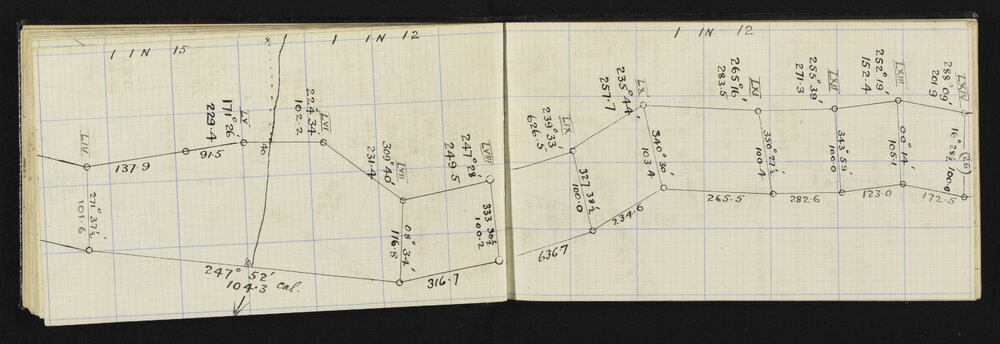 1 IN 15
1 IN 12
1 IN 12
LIV
137.9
271° 37½'
101.6
91.5
LV
171° 26'
229.4
46
LVI
224 34
102.2
247° 52'
104.3 cal.
LVII
309° 40'
231.4
08° 34'
116.8
316.7
LVIII
247° 28'
249.5
333 30½
100.2
LIX
239° 33
626.5
327 38½
100.0
636.7
234.6
LX
235° 44'
257.7
340° 30'
103.4
265.5
LXI
265° 16'
283.5
350° 27½'
100.4
282.6
LXII
255° 39'
271.3
343° 59'
100.0
123.0
LXIII
252° 19'
152.4
00° 14'
105.1
172.5
LXIV
288° 09'
201.9
16° 28½'
100.0
(26)